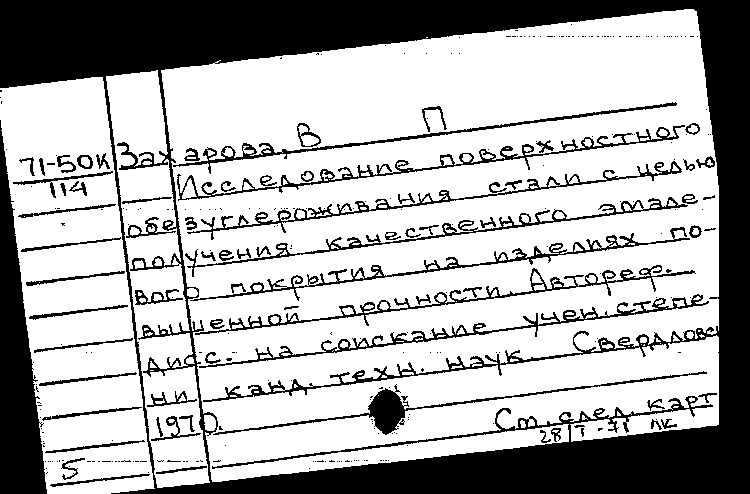 71-50К Захарова, В П
114 Исследование поверхностного
обезуглероживания стали с целью
получения качественного эмале-
вого покрытия на изделиях по-
вышенной прочности. Автореф.
дисс. на соискание учен. степе-
ни канд. техн. наук. Свердловс
1970.
См. след. карт
28/I-71 ЛК
5